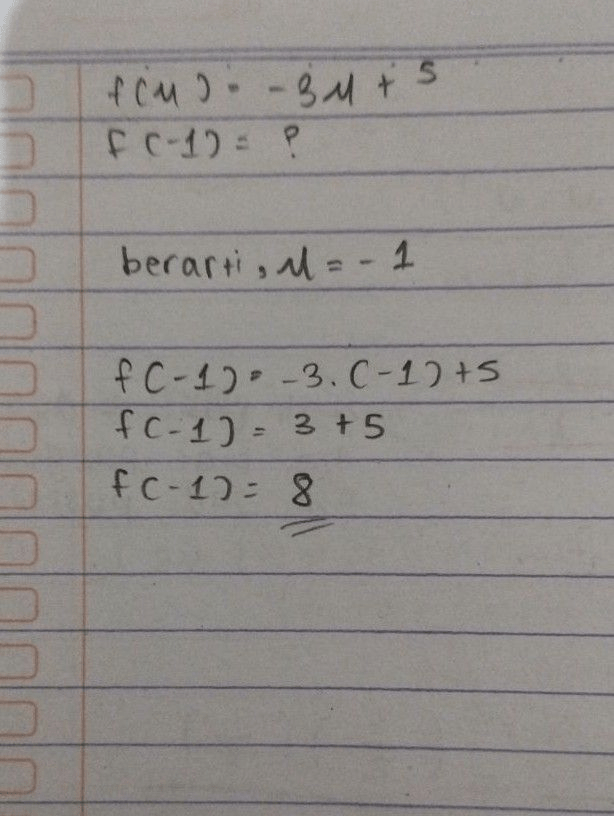 f(x) = -3x + 5
f(-1) = ?
berarti, x = -1
f(-1) = -3.(-1)+5
f(-1) = 3 + 5
f(-1) = 8